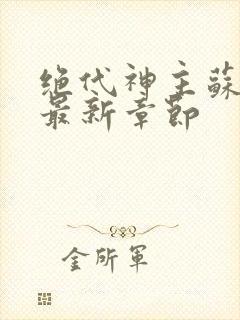 绝代神主蘇
最新章節
金所軍